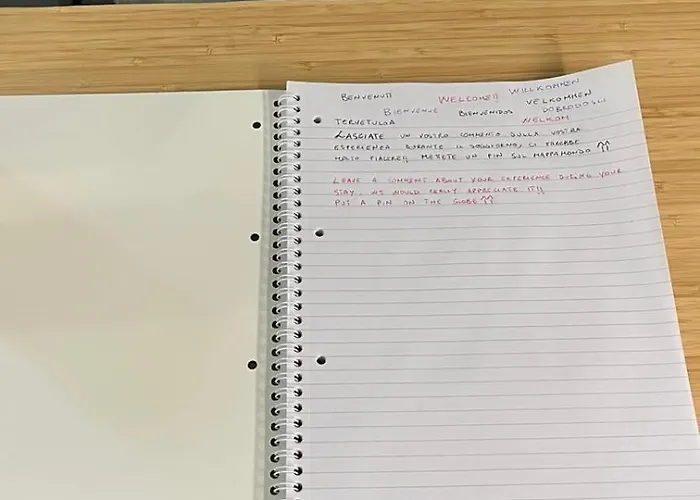 BENVENUTI WELCOME!! WILLKOMMEN
BIENVENUE BIENVENIDOS VELKOMMEN
TERVETULOA WELKOM DOBRODOSLI
LASCIATE UN VOSTRO COMMENTO SULLA VOSTRA
ESPERIENZA DURANTE IL SOGGIORNO, CI FAREBBE
MOLTO PIACERE!! METTETE UN PIN SUL MAPPAMONDO ⇈
LEAVE A COMMENT ABOUT YOUR EXPERIENCE DURING YOUR
STAY, WE WOULD REALLY APPRECIATE IT!!
PUT A PIN ON THE GLOBE ⇈